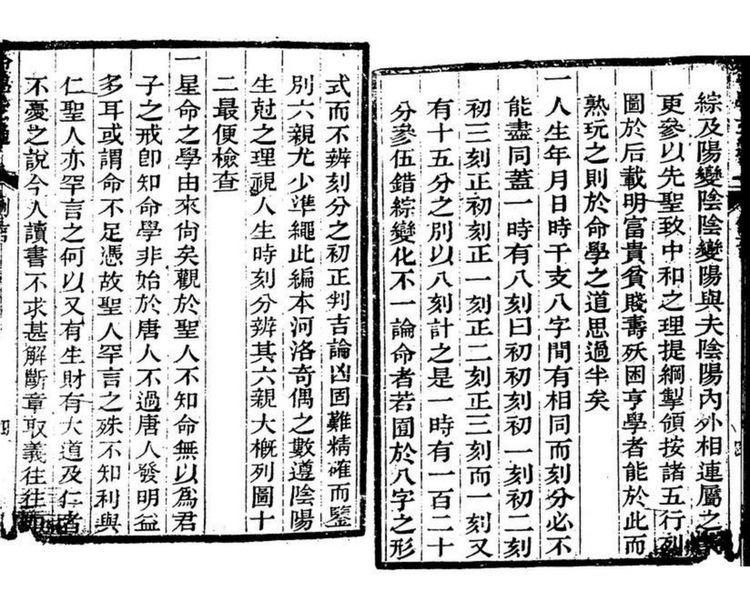 綜及陽變陰陰變陽與夫陰陽內外相連屬之
更參以先聖致中和之理提綱掣領按諸五行列
圖於后載明富貴貧賤壽殀困亨學者能於此而
熟玩之則於命學之道思過半矣
一人生年月日時干支八字間有相同而刻分必不
能盡同蓋一時有八刻曰初初刻初一刻初二刻
初三刻正初刻正一刻正二刻正三刻而一刻又
有十五分之別以八刻計之是一時有一百二十
分參伍錯綜變化不一論命者若囿於八字之形
式而不辨刻分之初正判吉論凶固難精確而鑒
別六親尤少準繩此編本河洛奇偶之數遵陰陽
生尅之理視人生時刻分辨其六親大槪列圖十
二最便檢查
一星命之學由來尙矣觀於聖人不知命無以爲君
子之戒卽知命學非始於唐人不過唐人發明益
多耳或謂命不足憑故聖人罕言之殊不知利與
仁聖人亦罕言之何以又有生財有大道及仁者
不憂之說今人讀書不求甚解斷章取義往往